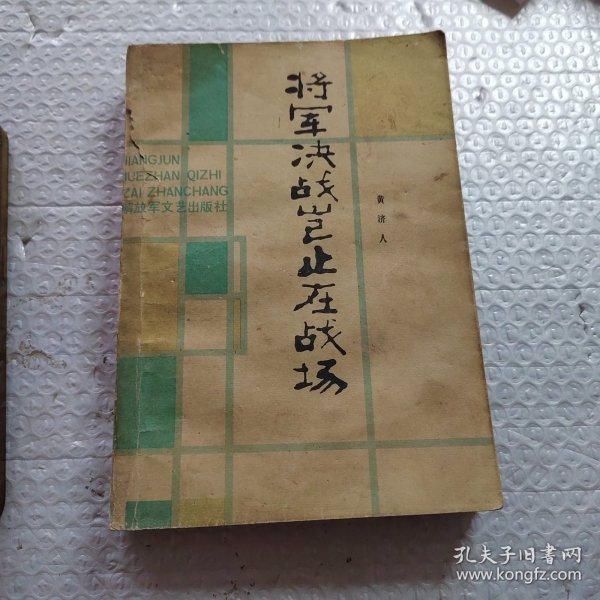 将军决战岂止在战场
黄济人
JIANGJUN
JUEZHAN QIZHI
ZAI ZHANCHANG
解放军文艺出版社
孔夫子旧书网
www.kongfz.com